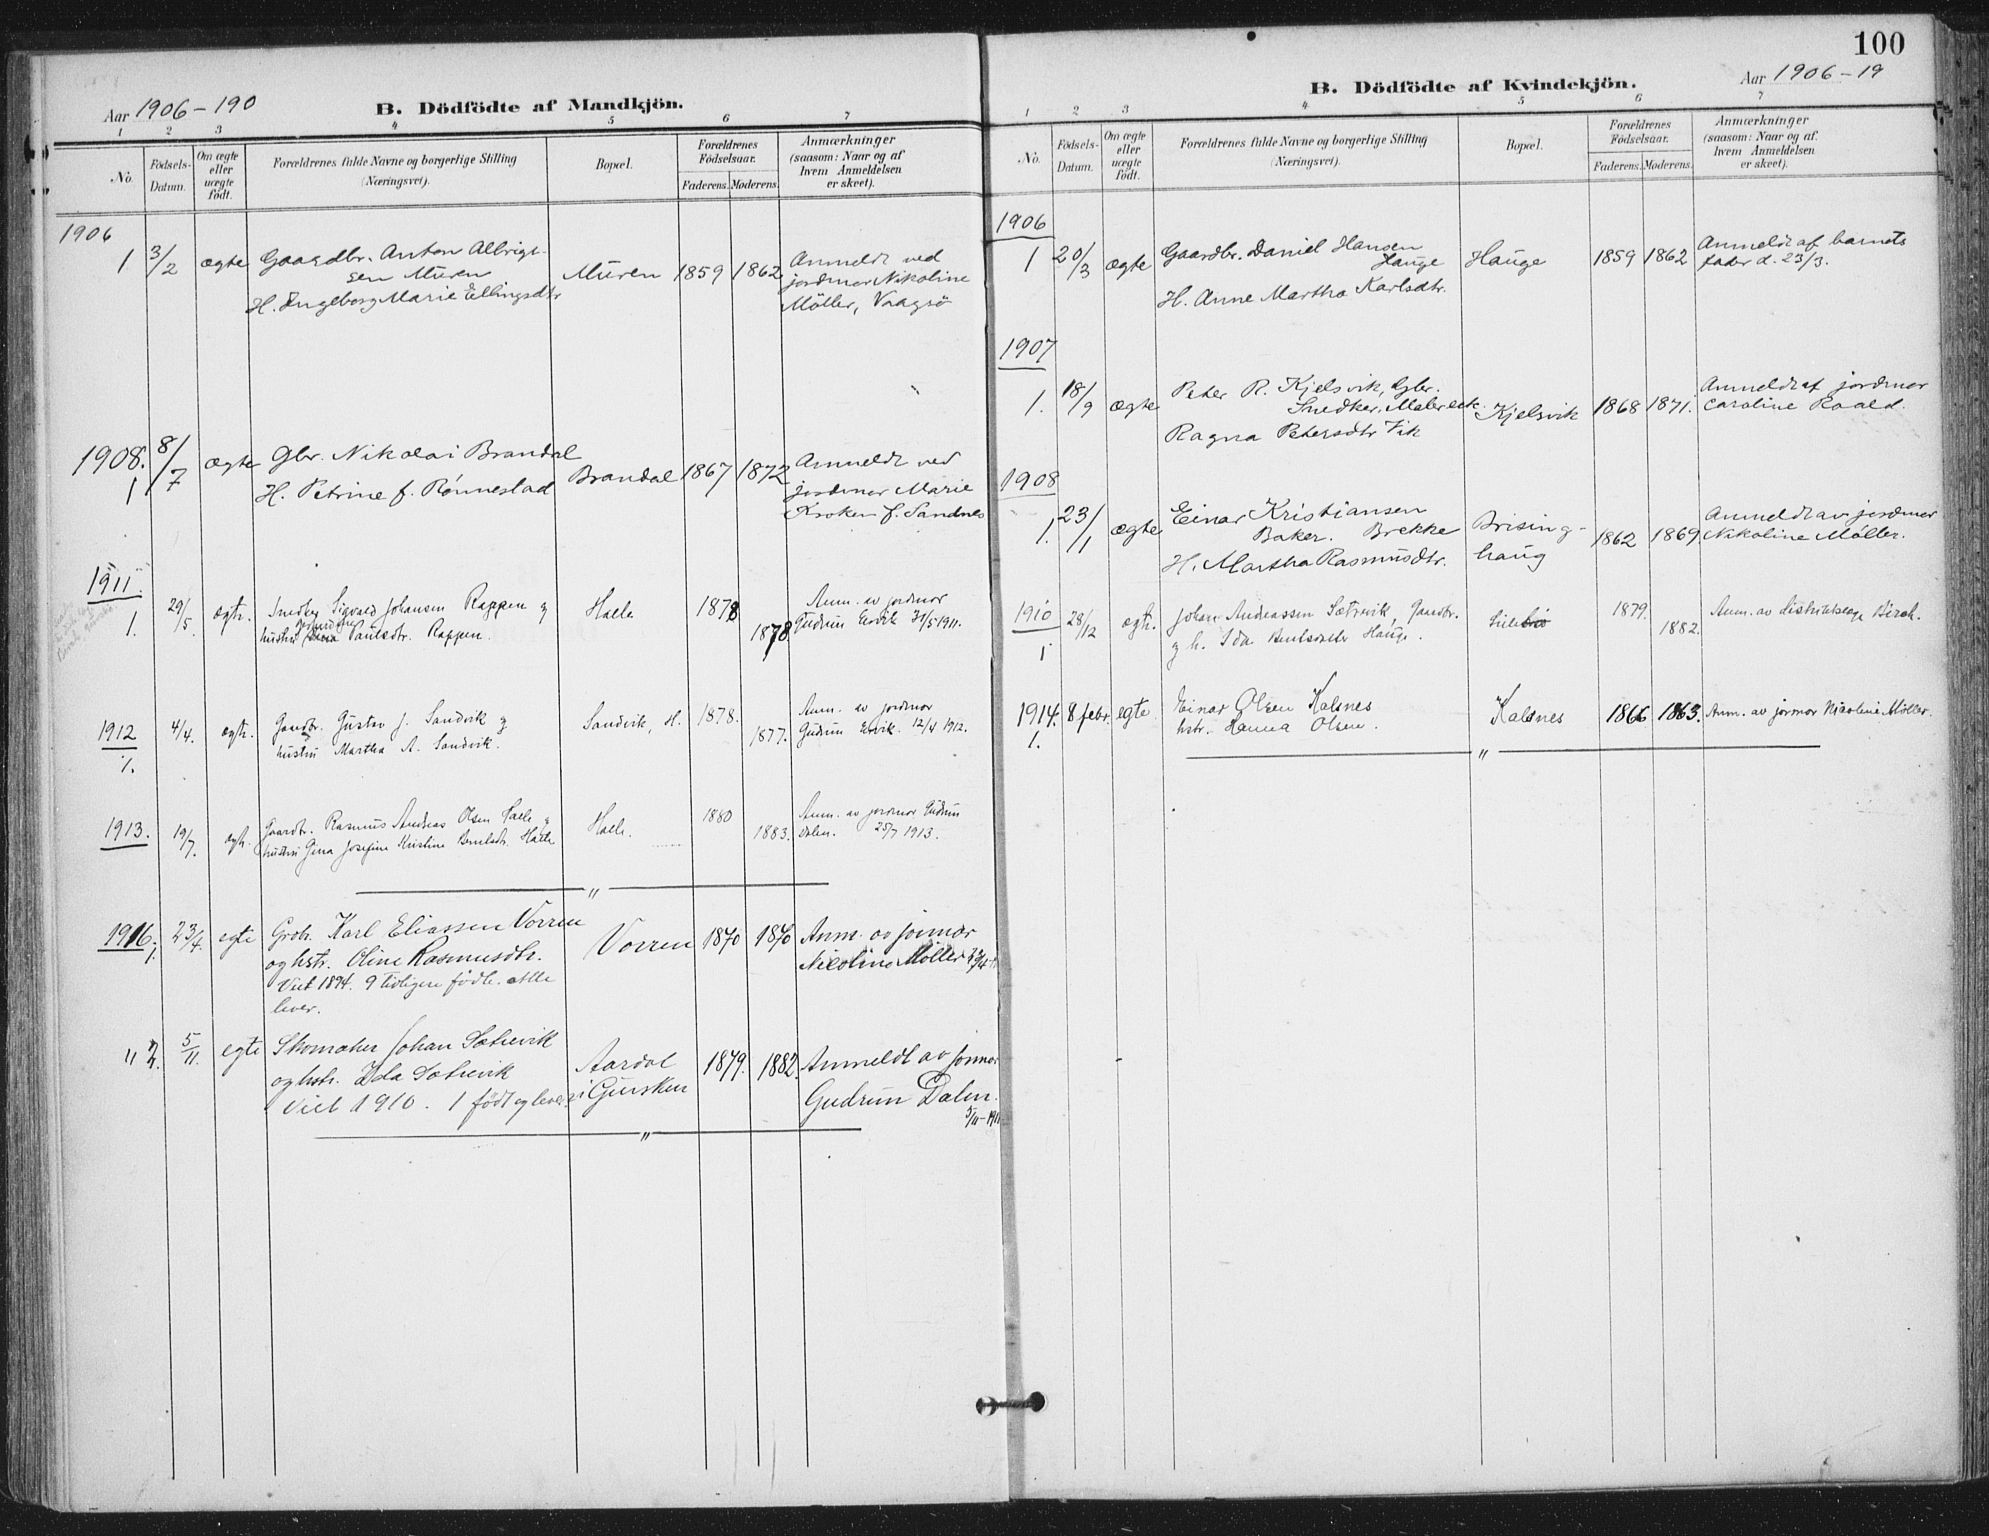 Aar 1906-190
B. Dödfödte af Mandkjön.
1 2 3 4 5 6 7
No.
Födsels-Datum.
Om ægte eller uægte födt.
Forældrenes fulde Navne og borgerlige Stilling (Næringsvei).
Bopæl.
Forældrenes Födselsaar.
Faderens. Moderens.
Anmærkninger (saasom: Naar og af hvem Anmeldelsen er skeet).
1906
1 3/2 ægte Gaardbr. Anton Albrigt- Muren 1859 1862 Anmeldt ved
sen Muren jordmor Nikoline
H. Ingeborg Marie Ellingsdtr Möller, Vaagsö
1908. 8/7 ægte Gbr. Nikolai Brandal Brandal 1867 1872 Anmeldt ved
1 H. Petrine f. Rönnestad jordmor Marie
Kroken f. Sandnes
1911.
1. 29/5. ægte. Snedker Sigvald Johansen Rappen og Halle 1878 Anm. av jordmor
hustru Paulsdtr. Rappen. 1878 Gudrun Ervik 31/5 1911.
1912 4/4. ægte. Gaardbr. Gustav J. Sandvik og Sandvik, H. 1878. Anm. av jordmor
1. hustru Martha A. Sandvik. 1877. Gudrun Ervik. 12/4 1912.
1913. 19/7. ægte. Gaardbr. Rasmus Andreas Olsen Halle og Halle. 1880 Anm. av jordmor Gudrun
hustru Gina Josefine Kristine Halle 1883. Dalen. 25/7 1913.
"
1916. 23/4. egte Grdbr. Karl Eliassen Vorren Vorren 1870 1870 Anm. av jormor
1. og hstr. Oline Rasmusdtr. Nicoline Möller 23/4
Viet 1894. 9 tidligere födte. Alle
lever.
" 2. 5/11. egte Skomaker Johan Sætrevik Aardal 1879. 1882. Anmeldt av jormor
og hstr. Ida Sætrevik i Gursken Gudrun Dalen.
Viet 1910. 1 födt og lever. 5/11-191
"
100
Aar 1906-19
B. Dödfödte af Kvindekjön.
1 2 3 4 5 6 7
No.
Födsels-Datum.
Om ægte eller uægte födt.
Forældrenes fulde Navne og borgerlige Stilling (Næringsvei).
Bopæl.
Forældrenes Födselsaar.
Faderens. Moderens.
Anmærkninger (saasom: Naar og af hvem Anmeldelsen er skeet).
1906
1 20/3 ægte Gaardbr. Daniel Hansen Hauge 1859 1862 Anmeldt af barnets
Hauge fader d. 23/3.
H. Anne Martha Karlsdtr.
1907
1. 18/9 ægte Peter R. Kjelsvik, Gbr. Kjelsvik 1868 1871. Anmeldt af jordmor
Snedker, Maler etc. Caroline Raald.
Ragna Petersdtr Vik
1908
1. 23/1 ægte Einar Kristiansen Brising- 1862 1869 Anmeldt av jordmor
Baker. Brekke haug Nikoline Möller.
H. Martha Rasmusdtr.
1910 28/12 ægte. Johan Andreassen Sætrevik, Gaardbr. 1879. Anm. av distriktslæge Birch.
1 og h. Ida Hauge. 1882.
1914. 8 febr. egte. Einar Olsen Kalsnes Kalsnes 1866 1863. Anm. av jormor Nicoline Möller.
1. hstr. Hanna Olsen.
"